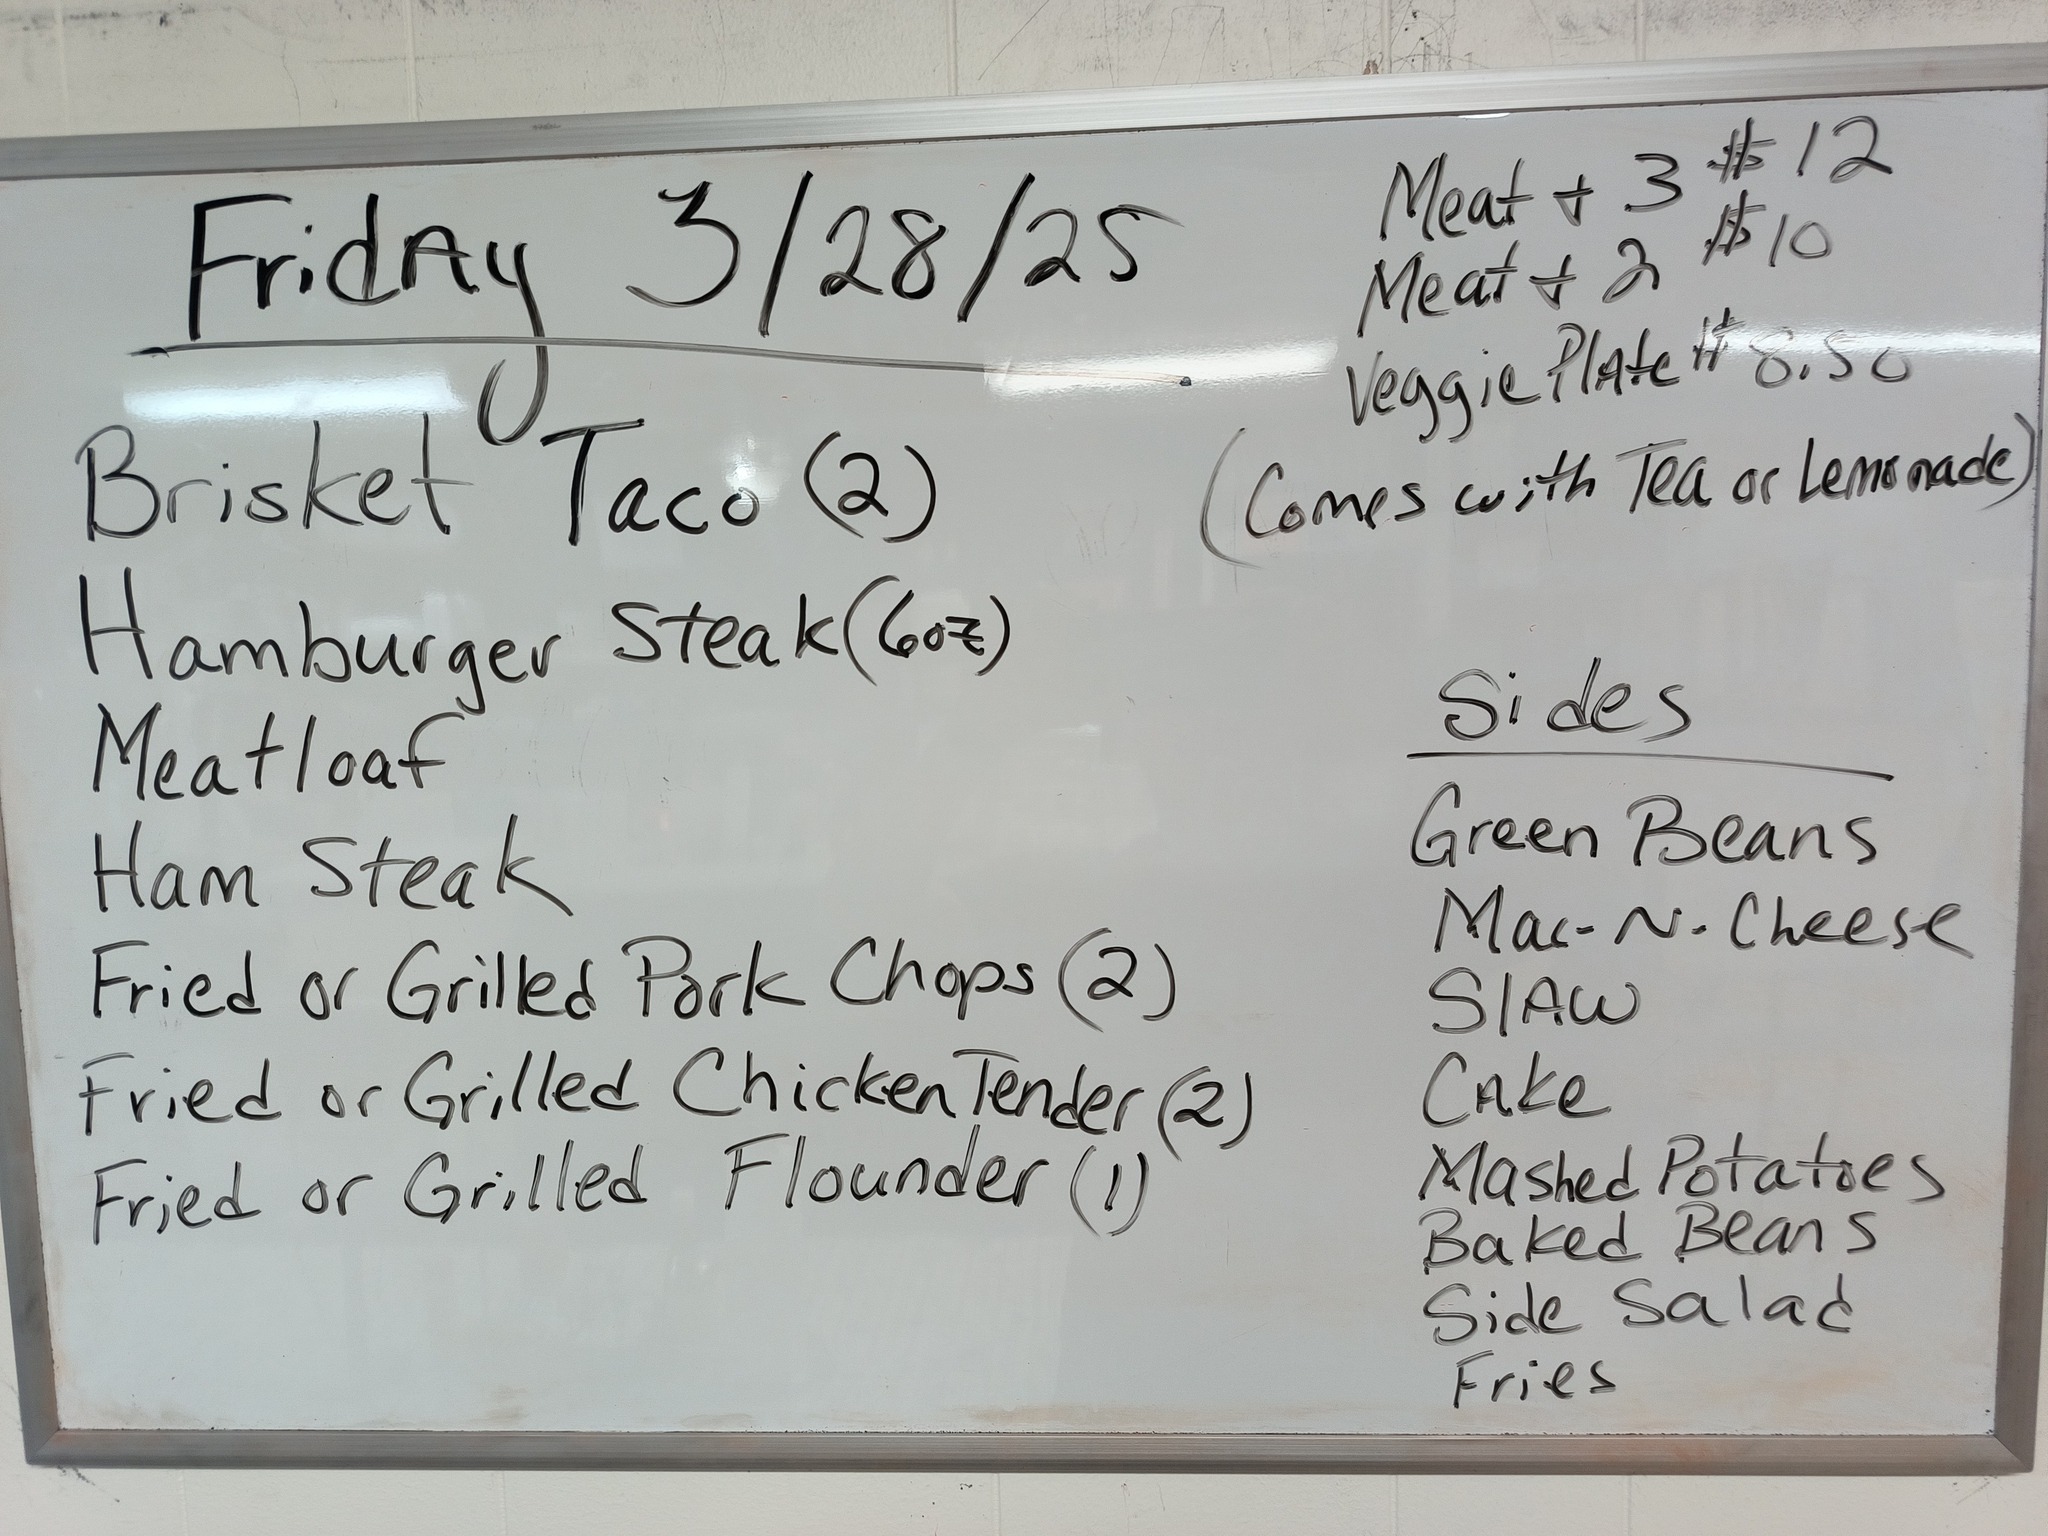 Friday 3/28/25
Brisket Taco (2)
Hamburger Steak (6oz)
Meatloaf
Ham Steak
Fried or Grilled Pork Chops (2)
Fried or Grilled Chicken Tender (2)
Fried or Grilled Flounder (1)
Meat + 3 $12
Meat + 2 $10
Veggie Plate $8.50
(Comes with Tea or Lemonade)
Sides
Green Beans
Mac-N-Cheese
Slaw
Cake
Mashed Potatoes
Baked Beans
Side Salad
Fries